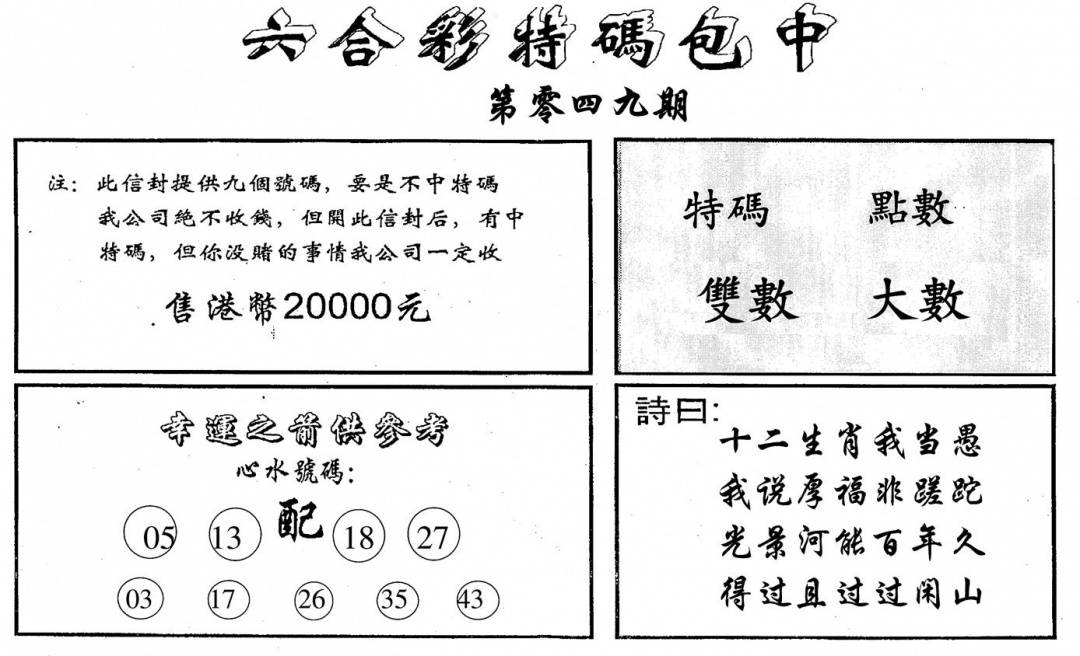 六合彩特碼包中
第零四九期
注：此信封提供九個號碼，要是不中特碼
我公司絕不收錢，但開此信封后，有中
特碼，但你没賭的事情我公司一定收
售港幣20000元
特碼 點數
雙數 大數
幸運之箭供參考
心水號碼：
05 13 配 18 27
03 17 26 35 43
詩曰：
十二生肖我当愚
我说厚福非蹉跎
光景河能百年久
得过且过过闲山